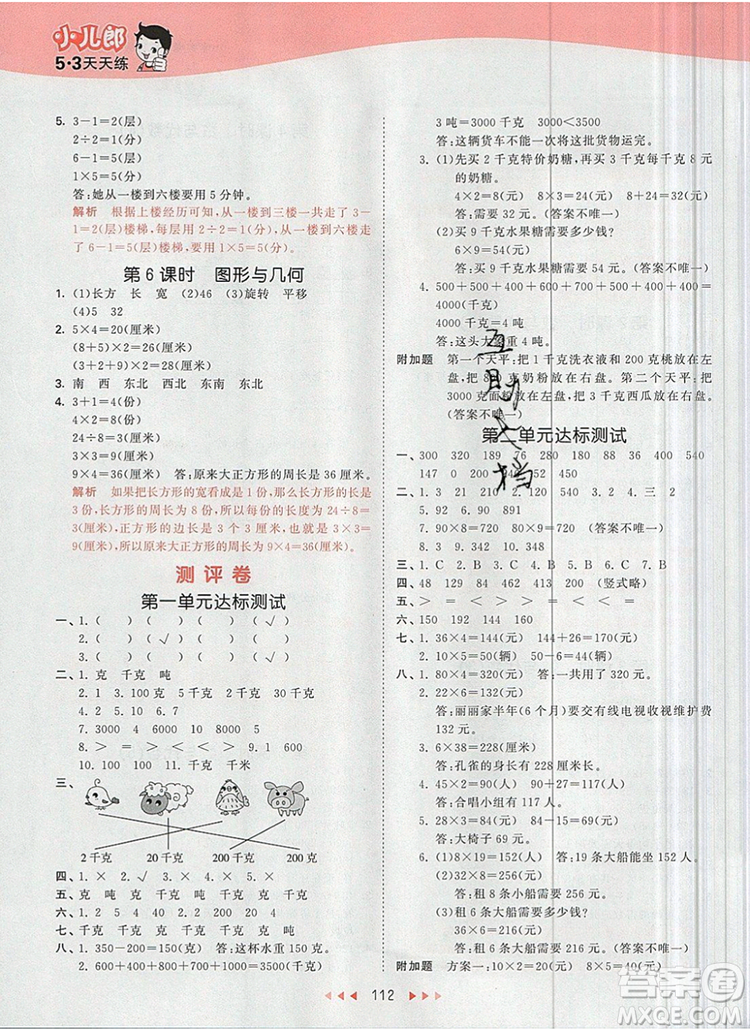 小儿郎
5·3天天练
5. 3－1=2(层)
2÷2=1(分)
6－1=5(层)
1×5=5(分)
答:她从一楼到六楼要用 5 分钟。
解析 根据上楼经历可知,从一楼到三楼一共走了 3－
1=2(层)楼梯,每层用了 2÷2=1(分),到六楼走
了 6－1=5(层)楼梯,应用 1×5=5(分)。
第 6 课时 图形与几何
1. (1)长方 长 宽 (2)46 (3)旋转 平移
(4)5 32
2. 5×4=20(厘米)
(8+5)×2=26(厘米)
(3+2+9)×2=28(厘米)
3. 南 西 东北 西北 东南 西南
4. 3+1=4(份)
4×2=8(份)
24÷8=3(厘米)
3×3=9(厘米)
9×4=36(厘米) 答:原来大正方形的周长是 36 厘米。
解析 如果把长方形的宽看成是 1 份,那么长方形的长是
3 份,长方形的周长一共是 8 份,每份的长度是 24÷8=
3(厘米),正方形的边长是 3 个 3 厘米,也就是 3×3=
9(厘米),所以原来大正方形的周长为 9×4=36(厘米)。
测评卷
第一单元达标测试
一、1. ( ) ( ) ( ) (√)
2. ( ) ( ) (√) ( )
3. ( ) ( ) ( ) (√)
二、1. 克 千克 克 吨
2. 1 2 3. 100 克 5 千克 2 千克 200 克
4. 3 2 5. 10 6. 7
7. 5000 3 6000 15 1000 4000
8. ＞ ＞ ＝ ＞ ＜ ＜ 9. 6
10. 100 100 11. 千克 克 千克
三、
2 千克 20 千克 200 千克 200 克
四、1. × 2. √ 3. × 4. × 5. ×
五、克 吨 克 千克 克 千克
六、1. ② 2. ③ 3. ② 4. ①
七、克 克 克 千克 吨
八、1. 350－200=150(克) 答:这杯水重 150 克。
2. 600+400+1500+1000=3500(千克)
3 吨=3000 千克 3000＜3500
答:这辆货车不能一次将这批货物运完。
3. (1)先买 2 千克特价奶糖,再买 3 千克每千克 8 元
的奶糖。
4×2=8(元) 8×3=24(元) 8+24=32(元)
答:需要 32 元。(答案不唯一)
(2)买 9 千克水果糖需要多少钱?
6×9=54(元)
答:买 9 千克水果糖需要 54 元。(答案不唯一)
4. 500+500+500+500+500+500+500+500
=4000(千克)
4000 千克=4 吨
答:这头大象重 4 吨。
附加题 第一个天平:把 1 千克洗衣液和 200 克桃放在左
盘,把 800 克奶粉放在右盘。第二个天平:把
3000 克面粉放在左盘,把 3 千克西瓜放在右盘。
(答案不唯一)
第二单元达标测试
一、300 320 189 76 280 88 360 140
147 0 420 240 0
二、1. 3 21 210 2. 3 540 3. 2 4. 三 2
5. 92 6. 90 891
7. 90×8=720 80×9=720 (答案不唯一)
8. 3 9. 342 10. 348
三、1. C 2. B 3. C 4. C 5. B 6. C 7. B
四、48 129 84 512 460 (竖式略)
五、＞ ＝ ＜ ＝ ＞ ＞
六、150 192 144 160
七、1. 36×4=144(元) 144+26=170(元)
2. 10×5=50(辆) 50－10=40(辆)
八、1. 80×4=320(元) 答:一共用了 320 元。
2. 22×6=132(元)
答:丽丽家半年(6 个月)要交有线电视收视维护费
132 元。
3. 6×38=228(厘米)
答:孔雀的身长约 228 厘米长。
4. 45×2=90(人) 90+90=180(人)
答:合唱小组有 180 人。
5. 28×3=84(元) 84－15=69(元)
答:大椅子 69 元。
6. (1)8×19=152(人) 答:19 条大船能坐 152 人。
(2)32×8=256(元)
答:租 8 条小船需要 256 元。
(3)租 6 条大船需要多少钱?
36×6=216(元)
答:租 6 条大船需要 216 元。(答案不唯一)
附加题 方案一:10×2=20(元) 8×5=40(元)
112
答案圈
MXQE.COM